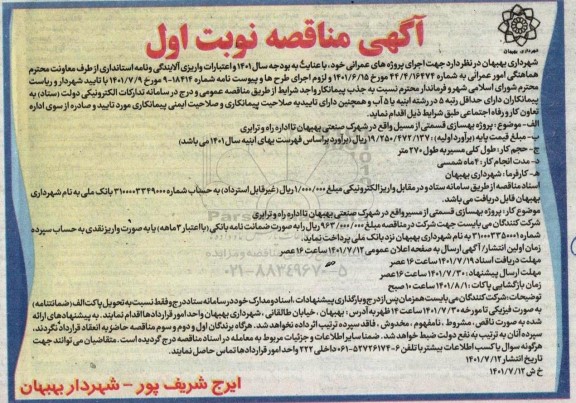 آگهی مناقصه نوبت اول
شهرداری بهبهان
شهرداری بهبهان در نظر دارد جهت اجرای پروژه های عمرانی خود، با عنایت به بودجه سال ۱۴۰۱ و اعتبارات واریزی آلایندگی و نامه استانداری از طرف معاونت محترم
هماهنگی امور عمرانی به شماره ۴۲/۴/۱۶۴۷۴ مورخ ۱۴۰۱/۶/۱۵ و لزوم اجرای طرح ها و پیوست نامه شماره ۱۸۴۱۴-۹ مورخ ۱۴۰۱/۷/۹ با تایید شهردار و ریاست
محترم شورای اسلامی شهر و فرماندار محترم نسبت به جذب پیمانکار واجد شرایط از طریق مناقصه عمومی و درج در سامانه تدارکات الکترونیکی دولت (ستاد) به
پیمانکاران دارای حداقل رتبه ۵ در رشته ابنیه یا ۵ آب و همچنین دارای تاییدیه صلاحیت پیمانکاری و صلاحیت ایمنی پیمانکاری مورد تایید و صادره از سوی اداره
تعاون کار و رفاه اجتماعی طبق شرایط ذیل اقدام نماید.
الف- موضوع: پروژه بهسازی قسمتی از مسیل واقع در شهرک صنعتی بهبهان تا اداره راه و ترابری
ب- مبلغ قیمت پایه (برآورد اولیه): ۱۹/۲۵۰/۴۷۲/۱۳۷ ریال (برآورد بر اساس فهرست بهای ابنیه سال ۱۴۰۱ می باشد)
ج- حجم کار: طول کلی مسیر به طول ۲۷۰ متر
د- مدت انجام کار: ۴ ماه شمسی
هـ- کارفرما: شهرداری بهبهان
اسناد مناقصه از طریق سامانه ستاد و در مقابل واریز الکترونیکی مبلغ ۱/۰۰۰/۰۰۰ ریال (غیر قابل استرداد) به حساب شماره ۳۱۰۰۰۰۳۳۴۹۰۰۰ بانک ملی به نام شهرداری
بهبهان قابل دریافت می باشد.
موضوع کار: پروژه بهسازی قسمتی از مسیر واقع در شهرک صنعتی بهبهان تا اداره راه و ترابری
شرکت کنندگان می بایست جهت شرکت در مناقصه مبلغ ۹۶۳/۰۰۰/۰۰۰ ریال را به صورت ضمانت نامه بانکی (با اعتبار ۳ ماهه) یا به صورت واریز نقدی به حساب سپرده
شماره ۳۱۰۰۰۳۳۵۰۰۱ به نام شهرداری بهبهان نزد بانک ملی پرداخت نماید.
زمان اولین انتشار/ آگهی ارسال به صفحه اعلان عمومی ۱۴۰۱/۷/۱۲ ساعت ۱۶ عصر
مهلت دریافت اسناد ۱۴۰۱/۷/۱۹ ساعت ۱۶ عصر
مهلت ارسال پیشنهاد: ۱۴۰۱/۷/۳۰ ساعت ۱۶ عصر
زمان بازگشایی پاکات: ۱۴۰۱/۸/۱ ساعت ۱۰ صبح
توضیحات: شرکت کنندگان می بایست همزمان پس از درج و بارگذاری پیشنهادات، اسناد و مدارک خود در سامانه ستاد درج و فقط نسبت به تحویل پاکت الف (ضمانتنامه)
به صورت فیزیکی تا مورخه ۱۴۰۱/۷/۳۰ ساعت ۱۴ ظهر به آدرس: بهبهان، خیابان طالقانی، شهرداری بهبهان واحد امور قراردادها اقدام نمایند. به پیشنهادهای ارائه
شده به صورت ناقص، مشروط، نامفهوم، مخدوش، فاقد سپرده ترتیب اثر داده نخواهد شد. هرگاه برندگان اول و دوم و سوم مناقصه حاضر به انعقاد قرارداد نگردند،
سپرده آنان به ترتیب به نفع دولت ضبط خواهد شد. ضمنا سایر اطلاعات و جزئیات مربوط به معامله در اسناد مناقصه درج گردیده است. متقاضیان می توانند جهت
هرگونه سوال یا کسب اطلاعات بیشتر با تلفن ۶-۰۶۱-۵۲۷۲۶۱۷۴ داخلی ۲۲۲ واحد امور قراردادها تماس حاصل نمایند.
تاریخ انتشار ۱۴۰۱/۷/۱۲
خ ش ۱۴۰۱/۷/۱۲
ایرج شریف پور - شهردار بهبهان
۰۲۱-۸۸۳۴۹۶۷۰-۵